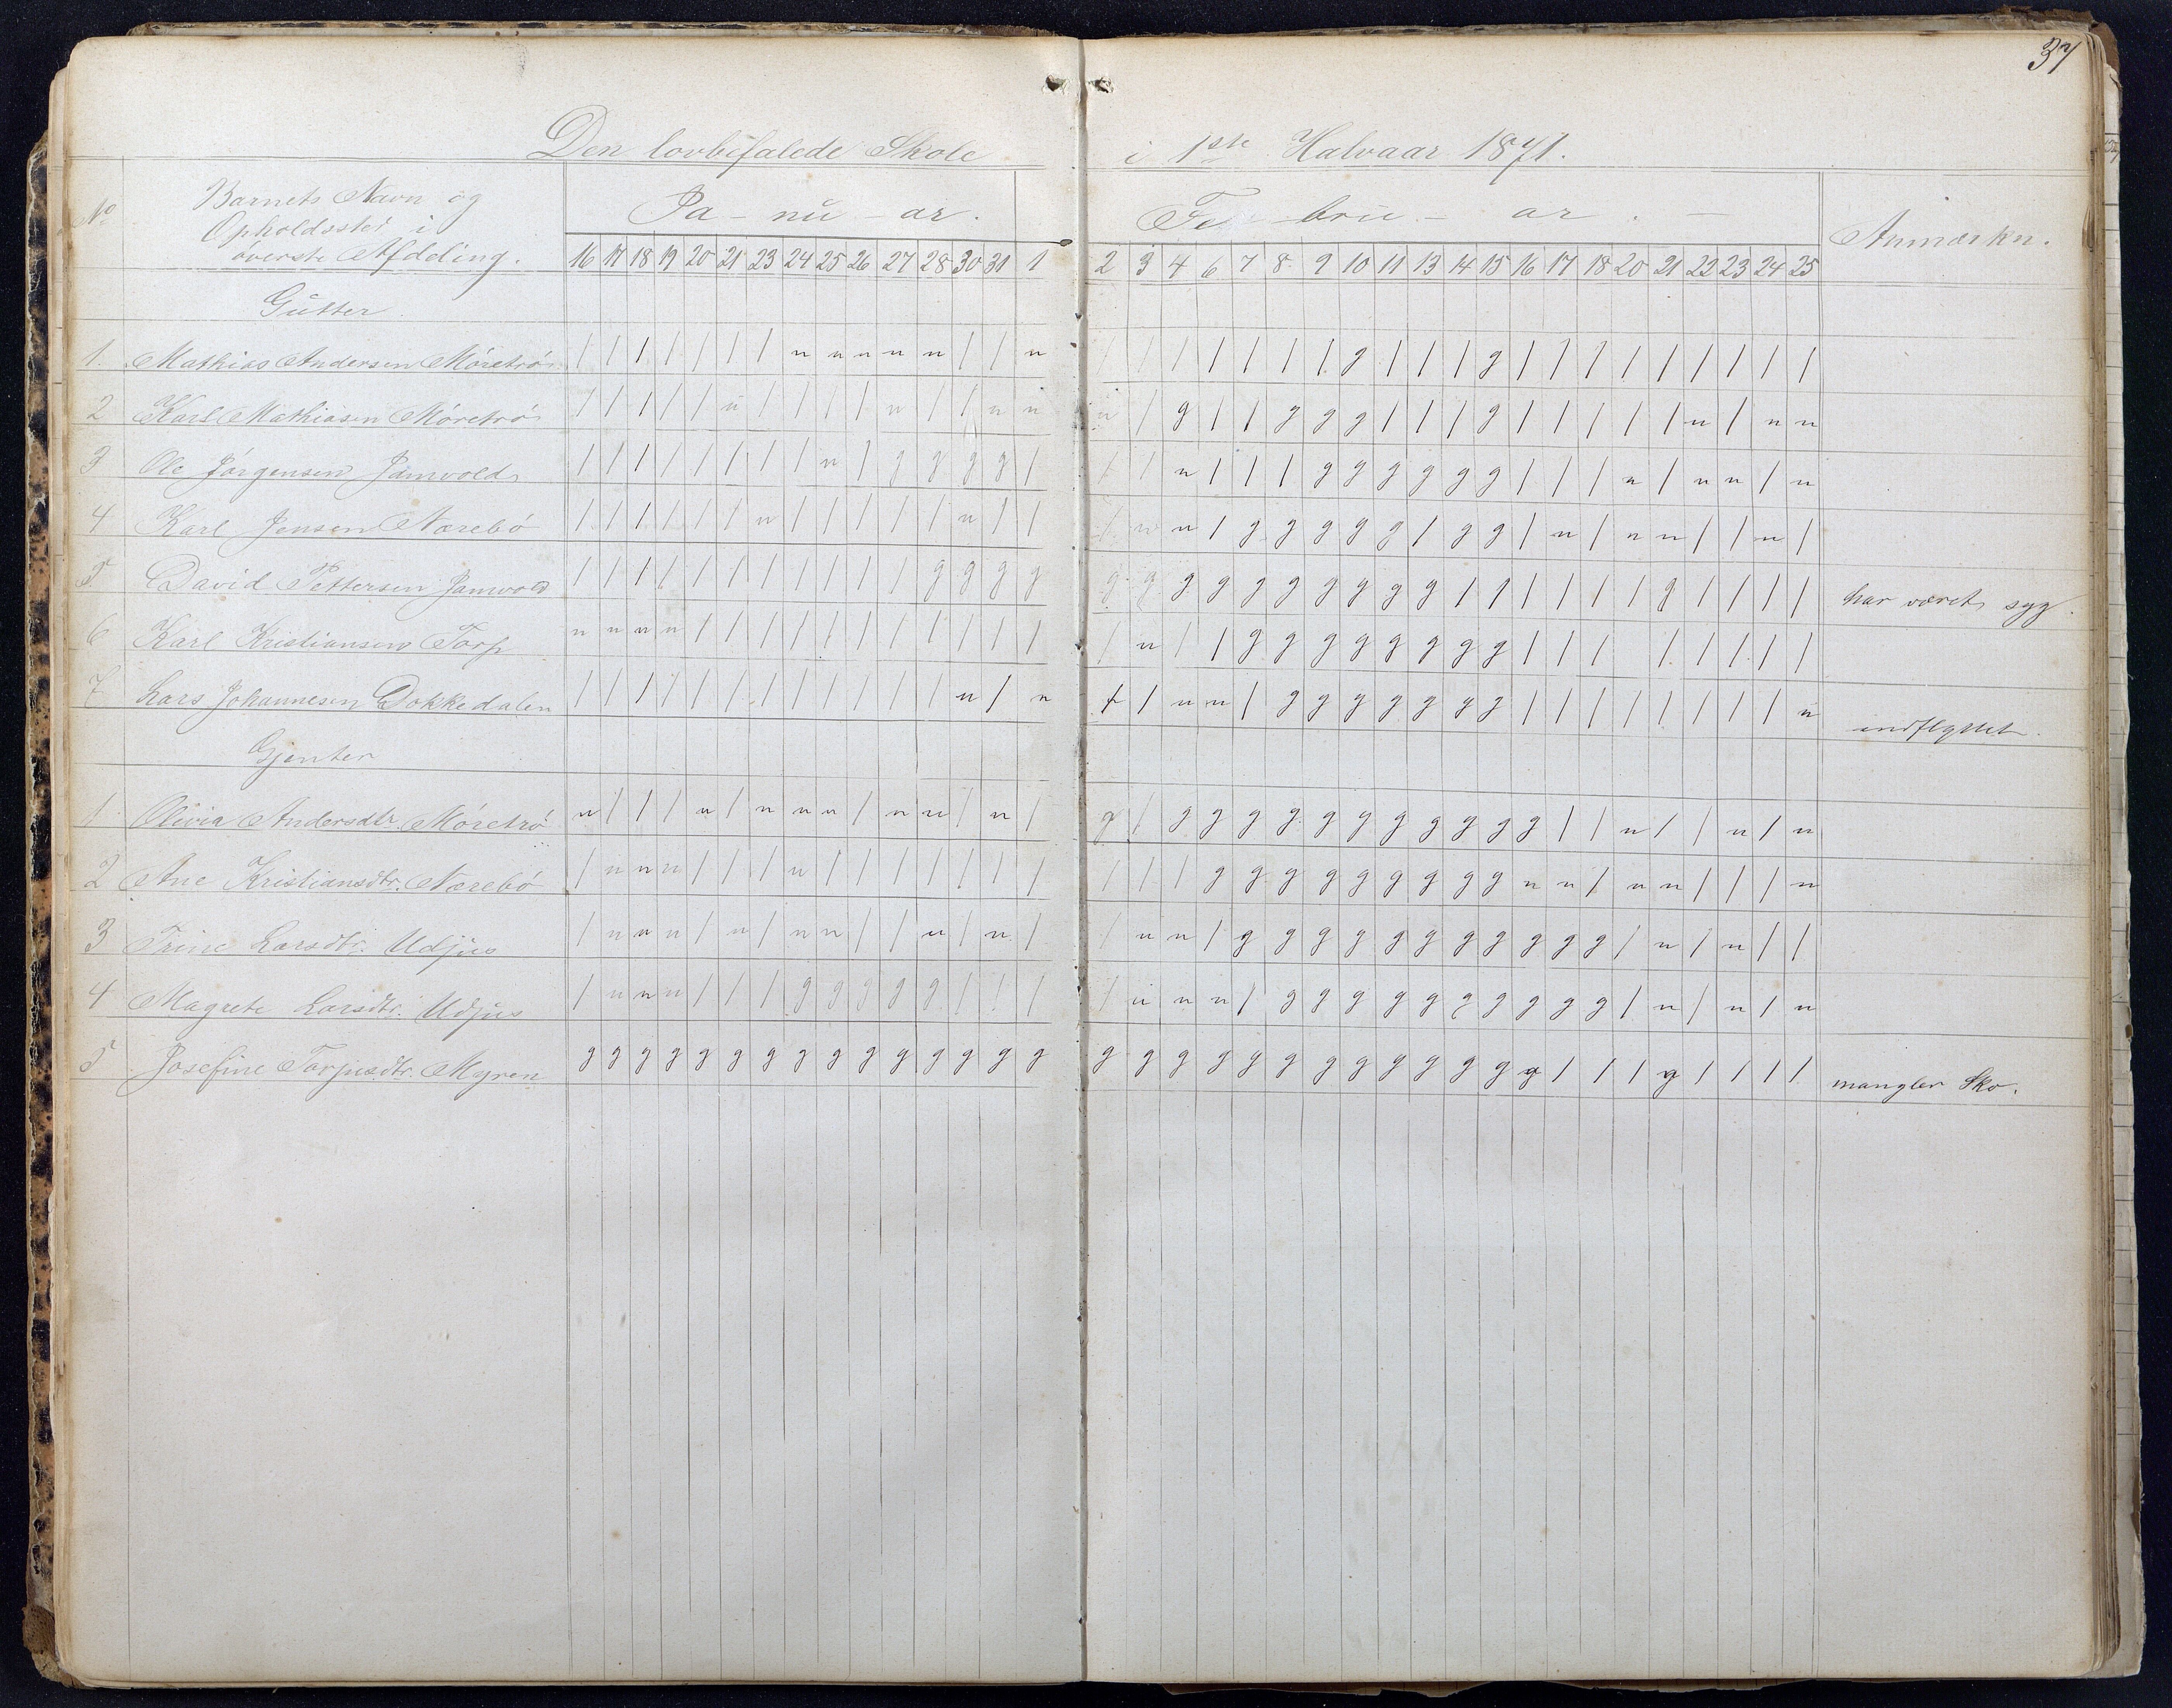 37
Den lovbefalede Skole i 1ste Halvaar 1871.
No Barnets Navn og Opholdssted i øverste Afdeling. Ja - nu - ar. Fe - bru - ar. - Anmærkn.
16 17 18 19 20 21 23 24 25 26 27 28 30 31 1 2 3 4 6 7 8 9 10 11 13 14 15 16 17 18 20 21 22 23 24 25
Gutter
1. Mathias Andersen Mōretrō / / / / / / / n n n n n / / n / / / / / / / g / / / g / / / / / / / / /
2 Karl Mathiasen Mōretrō / / / / / n / / / / n / / n n n / g / / g g g / / / g / / / / / n / n n
3 Ole Jörgensen Jamvold / / / / / / / / n / g g g g / / / n / / / g g g g g g / / / n / n n / n
4 Karl Jensen Nærebō / / / / / / n / / / / / n / / / n n / g g g g g / g g / n / n n / / n /
5 David Pettersen Jamvold / / / / / / / / / / / g g g g g g g g g g g g g g / / / / / / g / / / / har været syg.
6 Karl Kristiansen Torp n n n n / / / / / / / / / / / / n / / g g g g g g g g / / / / / / / /
7 Lars Johannesen Dokkedalen / / / / / / / / / / / / n / n / / n n / g g g g g g g / / / / / / / / n indflyttet.
Gjenter
1 Olivia Andersdtr. Mōretrō n / / / n / n n n / n n / n / g / g g g g g g g g g g g / / n / / n / n
2 Ane Kristiansdtr. Nærebō / n n n / / / n / / / / / / / / / / g g g g g g g g g n n / n n / / / n
3 Trine Larsdtr. Udjus / n n n / n / n n / / n / n / / n n / g g g g g g g g g g g / n / n / /
4 Magrete Larsdtr. Udjus / n n n / / / g g g g g / / / / n n n / g g g g g g g g g g / n / n / n
5 Josefine Torjusdtr. Myren g g g g g g g g g g g g g g g g g g g g g g g g g g g g / / / g / / / / mangler Sko.